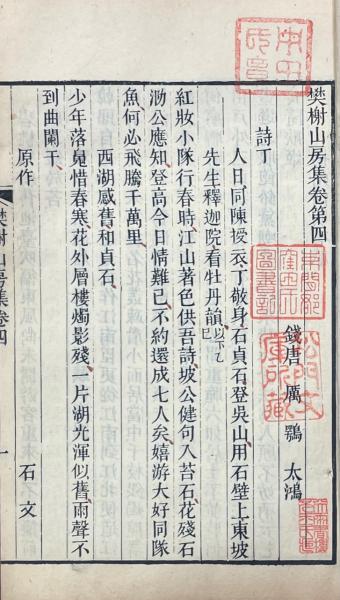 樊榭山房集卷第四
錢唐 厲鶚 太鴻
詩丁
人日同陳授衣丁敬身石貞石登吳山用石壁上東坡
先生釋迦院看牡丹韻以下乙巳
紅妝小隊行春時江山著色供吾詩坡公健句入苔石花殘石
泐公應知登高今日情難已不約還成七人矣嬉游大好同隊
魚何必飛騰千萬里
西湖感舊和貞石
少年落魄惜春寒花外層樓燭影殘一片湖光渾似舊雨聲不
到曲闌干
原作 石文
樊榭山房集卷四 一